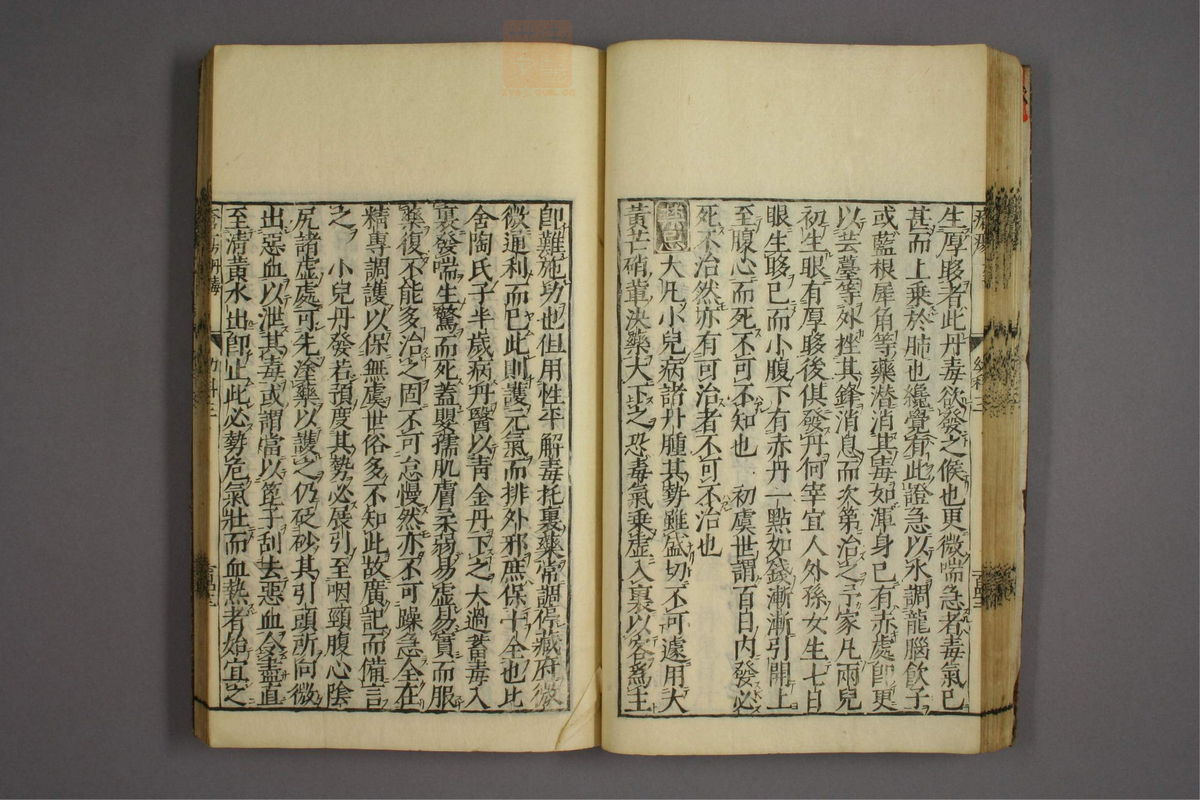 生厚眵者此丹毒欲發之候也更微喘急者毒氣已
甚而上乗於肺也纔覺有此證急以水調龍腦飲子
或藍根犀角等藥潜消其毒如渾身已有赤處卽更
以芸薹等外挫其鋒消息而次第治之予家凡兩兒
初生眼有厚眵後俱發丹何宰宜人外孫女生七日
眼生眵已而小腹下有赤丹一點如錢漸漸引開上
至腹心而死不可不知也 初虞世謂百日内發必
死不治然亦有可治者不可不治也
大凡小兒病諸丹腫其勢雖盛切不可遽用大
黃芒硝輩決藥大下之恐毒氣乗虚入裏以客爲主
卽難施功也但用性平解毒托裏藥常調停藏府微
微通利而已此則護元氣而排外邪庶保十全也比
舍陶氏子半歲病丹醫以靑金丹下之大過蓄毒入
裏發喘生驚而死蓋嬰孺肌膚柔弱易虚易實而服
藥復不能多治之固不可怠慢然亦不可躁急全在
精專調護以保無虞世俗多不知此故廣記而備言
之 小兒丹發若預度其勢必展引至咽頸腹心陰
尻諸虚處可先塗藥以護之仍砭砂其引頭所向微
出惡血以泄其毒或謂當以篦子刮去惡血令盡直
至淸黃水出卽止此必勢危氣壯而血熱者始宜之